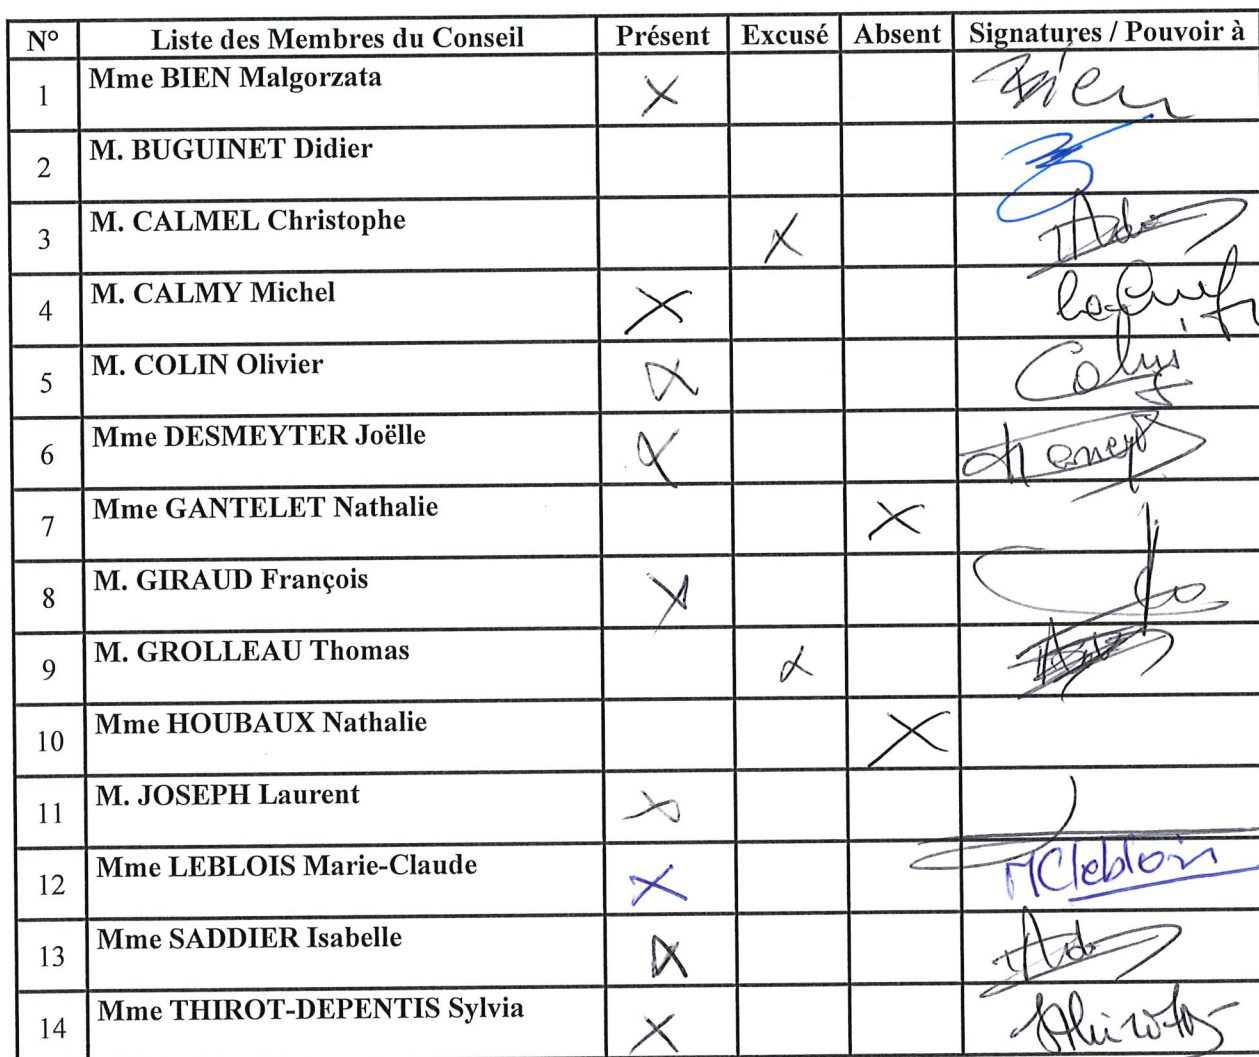 N° Liste des Membres du Conseil Présent Excusé Absent Signatures / Pouvoir à
1 Mme BIEN Malgorzata X Bien
2 M. BUGUINET Didier
3 M. CALMEL Christophe X
4 M. CALMY Michel X
5 M. COLIN Olivier X
6 Mme DESMEYTER Joëlle X
7 Mme GANTELET Nathalie X
8 M. GIRAUD François X
9 M. GROLLEAU Thomas X
10 Mme HOUBAUX Nathalie X
11 M. JOSEPH Laurent X
12 Mme LEBLOIS Marie-Claude X MCleblois
13 Mme SADDIER Isabelle X
14 Mme THIROT-DEPENTIS Sylvia X